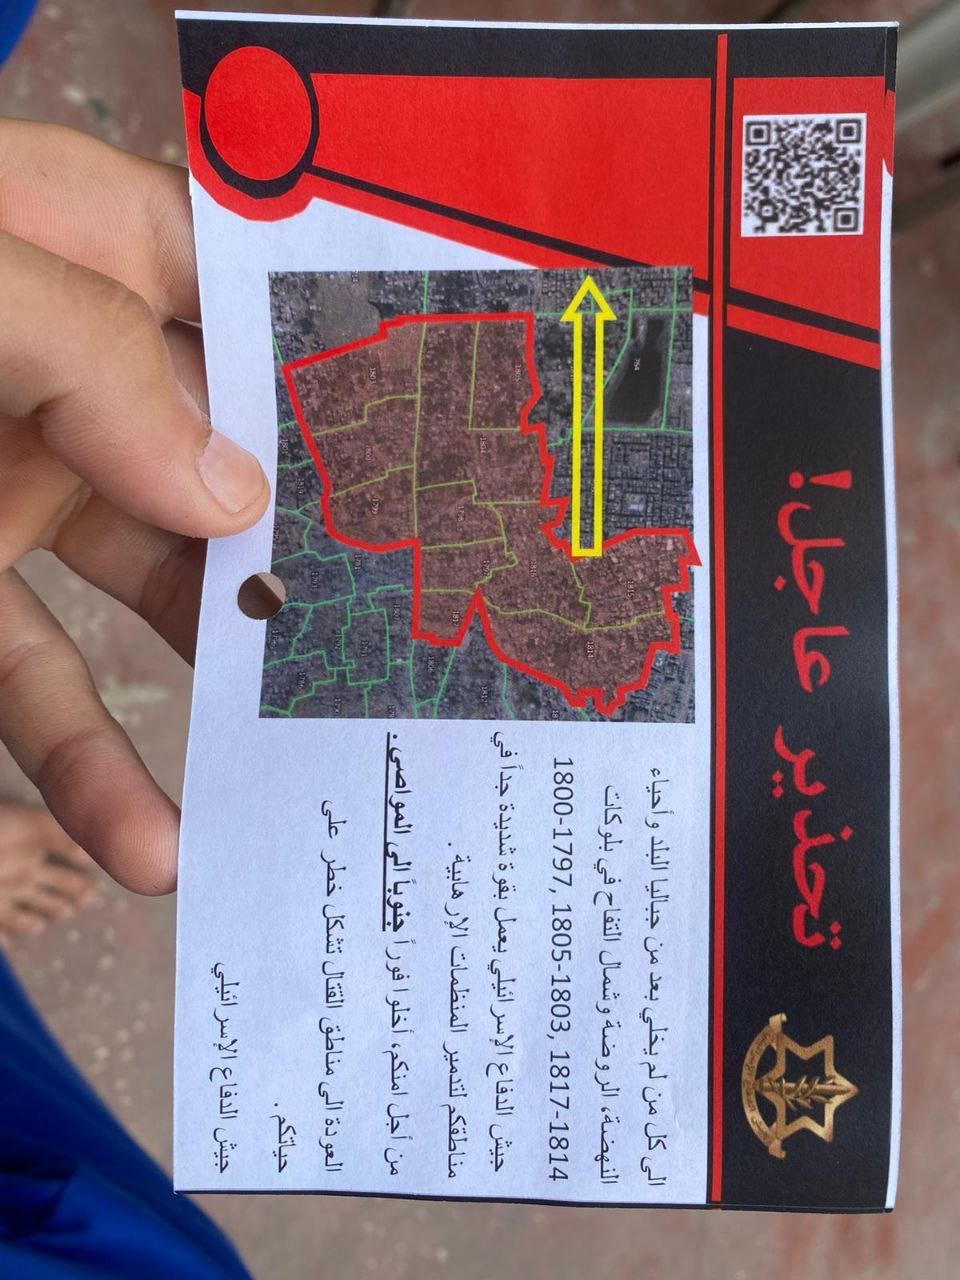 تحذير عاجل!
الى كل من لم يخلي بعد من جباليا البلد وأحياء
النهضة، الروضة وشمال التفاح في بلوكات
1800-1797, 1805-1803, 1817-1814
جيش الدفاع الإسرائيلي يعمل بقوة شديدة جداً في
مناطقكم لتدمير المنظمات الإرهابية.
من أجل امنكم، أخلوا فوراً جنوباً الى المواصي.
العودة الى مناطق القتال تشكل خطر على
حياتكم.
جيش الدفاع الإسرائيلي